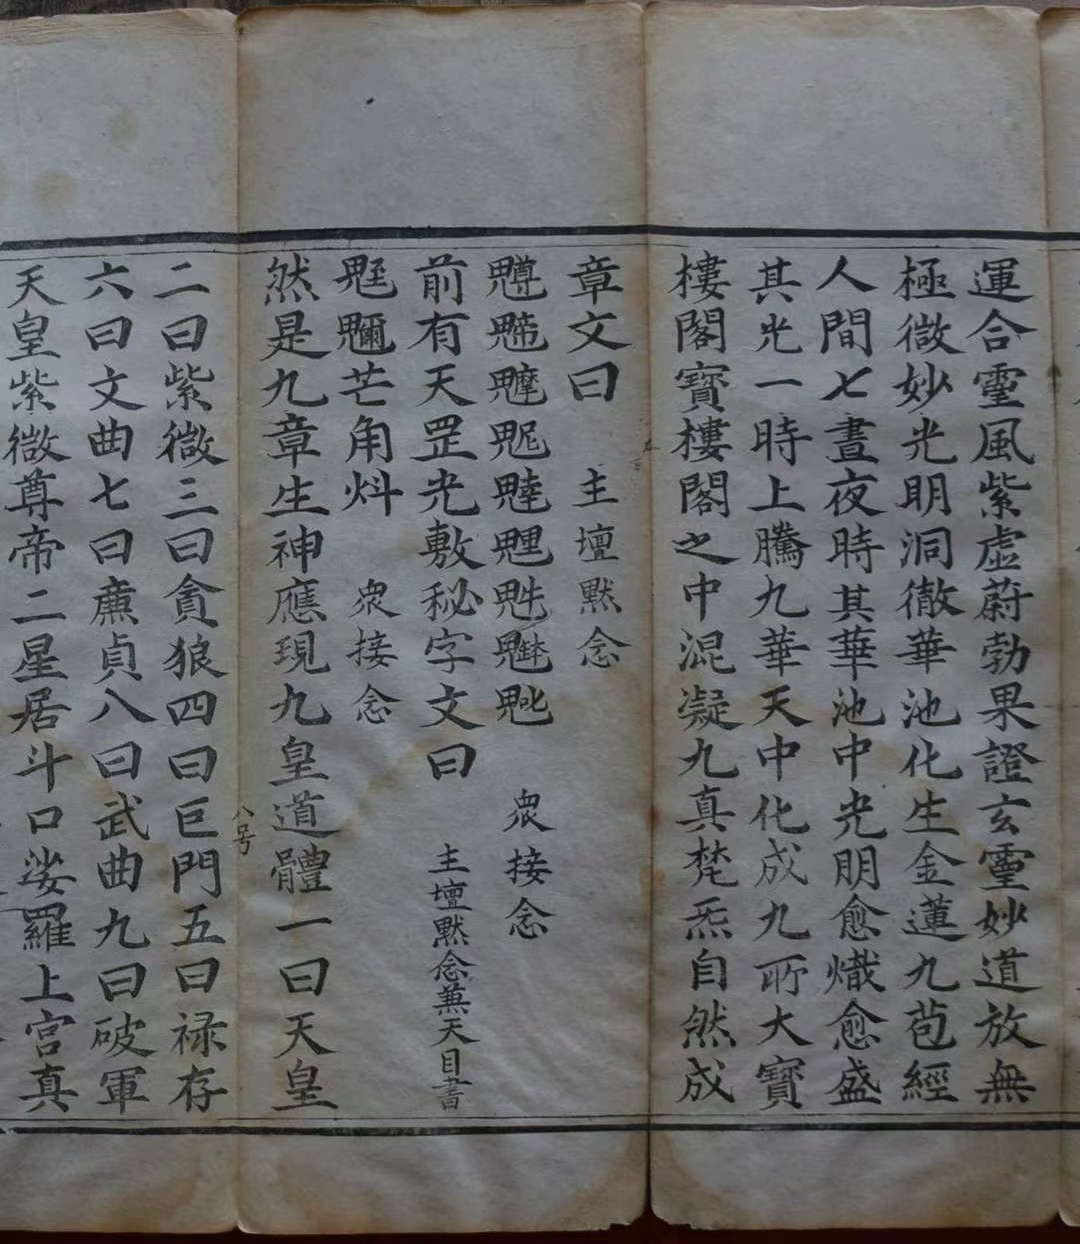 運合靈風紫虛蔚勃果證玄靈妙道放無
極微妙光明洞徹華池化生金蓮九苞經
人間七晝夜時其華池中光明愈熾愈盛
其光一時上騰九華天中化成九所大寶
樓閣寶樓閣之中混凝九真梵炁自然成
章文曰 主壇默念
眾接念
前有天罡光敷秘字文曰 主壇默念兼天目書
芒角炓 眾接念
然是九章生神應現九皇道體一曰天皇
八号
二曰紫微三曰貪狼四曰巨門五曰禄存
六曰文曲七曰廉貞八曰武曲九曰破軍
天皇紫微尊帝二星居斗口娑羅上宮真